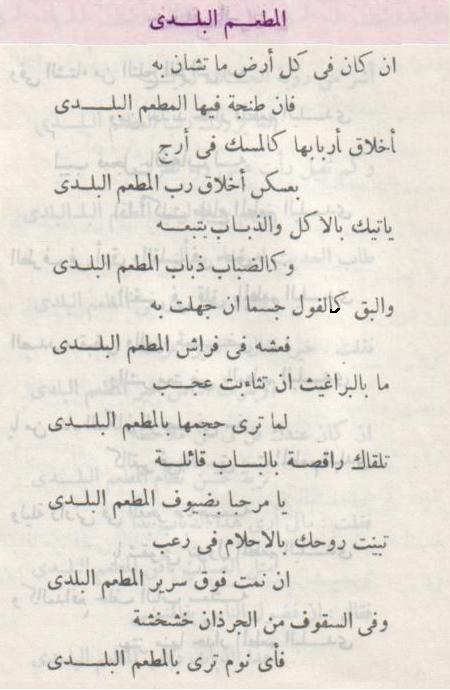 المطعم البلدى
ان كان فى كل أرض ما تشان به
فان طنجة فيها المطعم البلدى
أخلاق أربابها كالمسك فى أرج
بعسكن أخلاق رب المطعم البلدى
ياتيك بالاكل والذباب يتبعه
وكالضباب ذباب المطعم البلدى
والبق كالفول جسما ان جهلت به
فعشه فى فراش المطعم البلدى
ما بالبراغيث ان تثاءبت عجب
لما ترى حجمها بالمطعم البلدى
تلقاك راقصة بالباب قائلة
يا مرحبا بضيوف المطعم البلدى
تبيت روحك بالاحلام فى رعب
ان نمت فوق سرير المطعم البلدى
وفى السقوف من الجرذان خشخشة
فأى نوم ترى بالمطعم البلدى